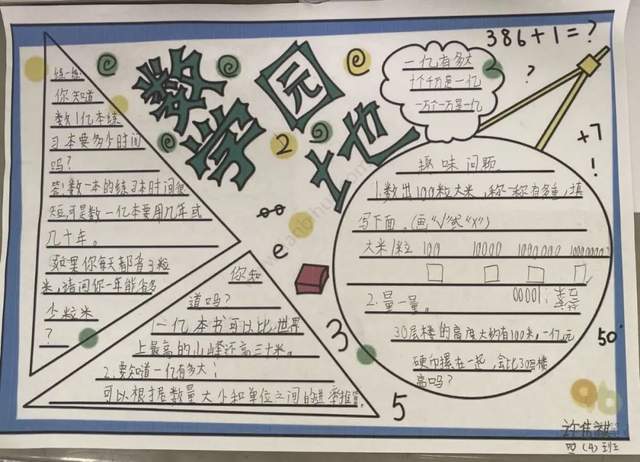 数学园地
练一练
你知道
数1亿本练
习本要多少时间
吗?
答:数一本的练习本时间很
短,可是数一亿本要用几年或
几十年。
如果你每天都省3粒
米,请问你一年能省多
少粒米
?
一亿有多大
十个千万是一亿
一万个一万是一亿
386+1=?
?
+7
!
趣味问题
1.数出100粒大米,称一称有多重,填
写下面。(画“√”或“×”)
大米/粒 100 10000 1000000
2.量一量。
30层楼的高度大约有100米,一亿元
硬币摞在一起,会比30层楼
高吗?
你知
道吗?
一亿本书可以比世界
上最高的山峰还高三十米。
2.要知道一亿有多大;
可以根据数量大小和单位之间的进率推算
e
e
e
2
2
3
5
50
ab
四(4)班